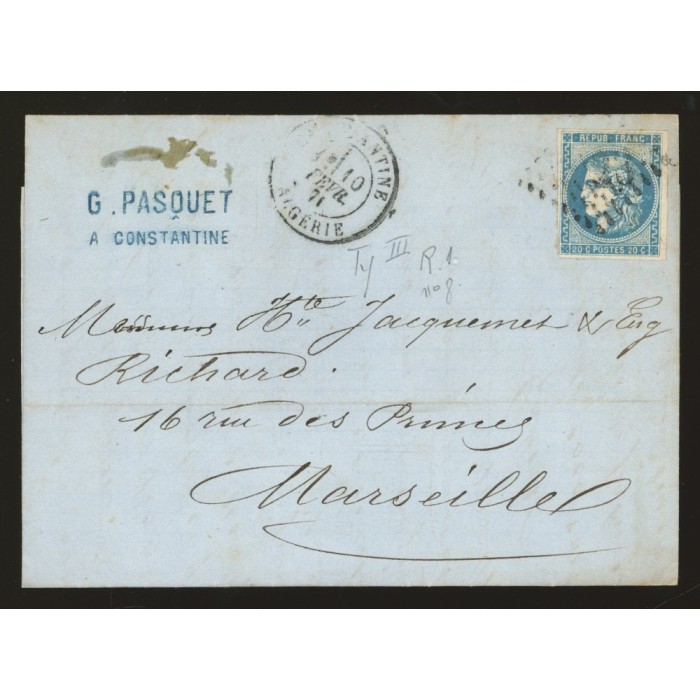 G. PASQUET
A
A CONSTANTINE
ANTINE
10
FEVR.
71
ALGÉRIE
REPUB. FRANC.
20 C. POSTES 20 C.
Ty III
R.1.
Hte Jacquemet & Eug
Richard.
16 rue des Princes
Marseille